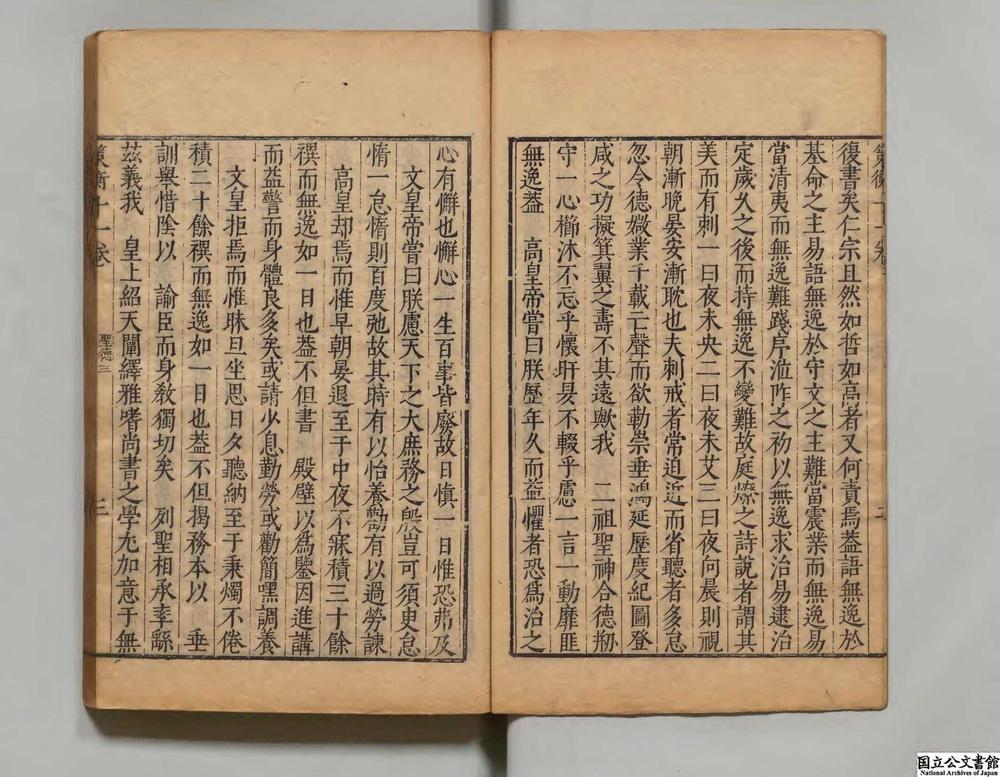 復書矣仁宗且然如哲如高者又何責焉葢語無逸於
基命之主易語無逸於守文之主難當震業而無逸易
當清夷而無逸難踐序涖阼之初以無逸求治易逮治
定歲久之後而持無逸不變難故庭燎之詩說者謂其
美而有刺一曰夜未央二曰夜未艾三曰夜向晨則視
朝漸晚晏安漸耽也夫刺戒者常迫近而省聽者多怠
忽今德媺業千載亡聲而欲勒崇垂鴻延歷度紀圖登
咸之功擬箕翼之壽不其遠歟我　二祖聖神合德剙
守一心櫛沐不忘乎懷旰昃不輟乎慮一言一動靡匪
無逸葢　高皇帝嘗曰朕歷年久而益懼者恐爲治之
心有懈也懈心一生百事皆廢故日慎一日惟恐弗及
文皇帝嘗曰朕慮天下之大庶務之殷豈可須臾怠
惰一怠惰則百度弛故其時有以怡養勸有以過勞諫
高皇却焉而惟早朝晏退至于中夜不寐積三十餘
禩而無逸如一日也葢不但書　殿壁以爲鑒因進講
而益警而身體良多矣或請少息勤勞或勸簡嘿調養
文皇拒焉而惟昧旦坐思日夕聽納至于秉燭不倦
積二十餘禩而無逸如一日也葢不但揭務本以　垂
訓舉惜陰以　諭臣而身教獨切矣　列聖相承率繇
茲義我　皇上紹天闡繹雅嗜尚書之學尤加意于無
策衡十一卷
聖德三
三
二
国立公文書館
National Archives of Japan